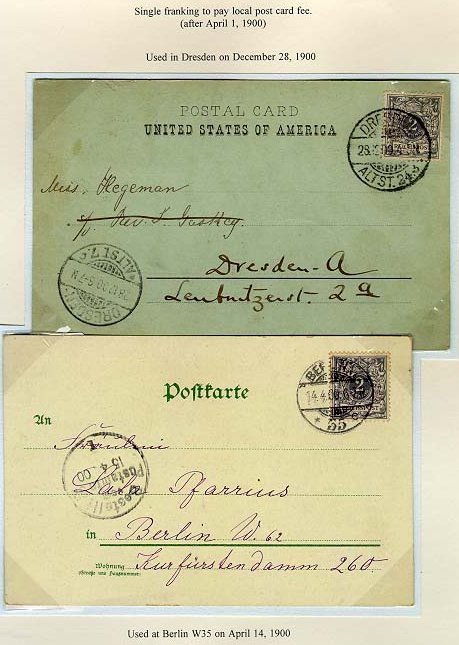 Single franking to pay local post card fee.
(after April 1, 1900)
Used in Dresden on December 28, 1900
POSTAL CARD
UNITED STATES OF AMERICA
DRESDEN
28.12.00
ALTST. 24.
Miss. Hegeman
Dresden-A
Leubnitzerst. 2a
DRESDEN
ALTST. 7.
28.12.00 6-7 N
Postkarte
BERLIN
14.4.00
* 35
2
An
Fräulein
Pfarrius
Bestellt
Postamt
15.4.00
in Berlin W. 62
Wohnung Kurfürstendamm 260.
(Straße und Hausnummer)
Used at Berlin W35 on April 14, 1900